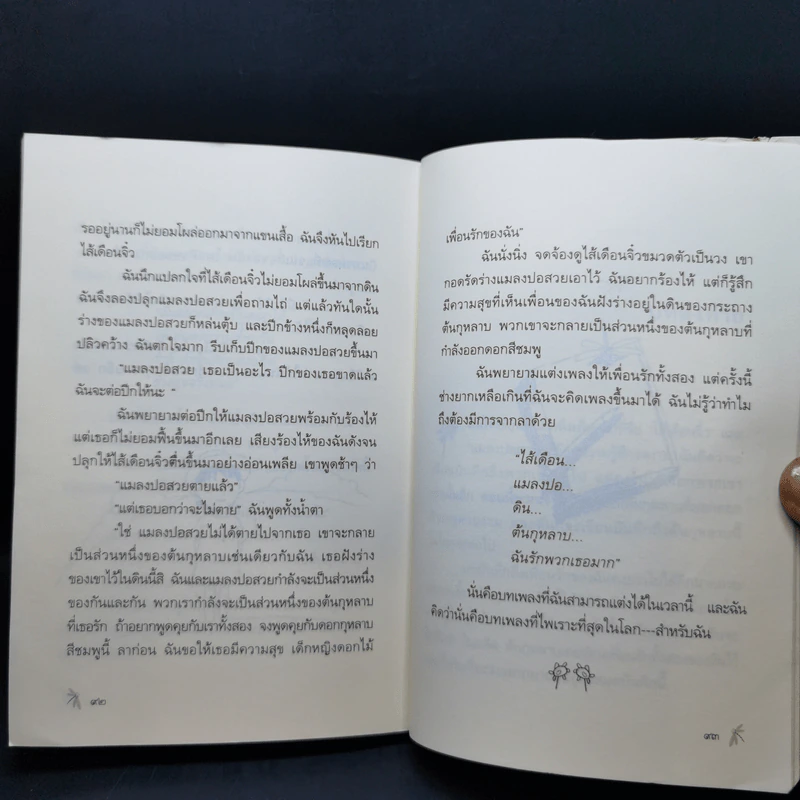 รออยู่นานก็ไม่ยอมโผล่ออกมาจากแขนเสื้อ ฉันจึงหันไปเรียก
ไส้เดือนจิ๋ว
ฉันนึกแปลกใจที่ไส้เดือนจิ๋วไม่ยอมโผล่ขึ้นมาจากดิน
ฉันจึงลองปลุกแมลงปอสวยเพื่อถามไถ่ แต่แล้วทันใดนั้น
ร่างของแมลงปอสวยก็หล่นตุ้บ และปีกข้างหนึ่งก็หลุดลอย
ปลิวคว้าง ฉันตกใจมาก รีบเก็บปีกของแมลงปอสวยขึ้นมา
"แมลงปอสวย เธอเป็นอะไร ปีกของเธอขาดแล้ว
ฉันจะต่อปีกให้นะ "
ฉันพยายามต่อปีกให้แมลงปอสวยพร้อมกับร้องไห้
แต่เธอก็ไม่ยอมฟื้นขึ้นมาอีกเลย เสียงร้องไห้ของฉันดังจน
ปลุกให้ไส้เดือนจิ๋วตื่นขึ้นมาอย่างอ่อนเพลีย เขาพูดช้าๆ ว่า
"แมลงปอสวยตายแล้ว"
"แต่เธอบอกว่าจะไม่ตาย" ฉันพูดทั้งน้ำตา
"ใช่ แมลงปอสวยไม่ได้ตายไปจากเธอ เขาจะกลาย
เป็นส่วนหนึ่งของต้นกุหลาบเช่นเดียวกับฉัน เธอฝังร่าง
ของเขาไว้ในดินนี้สิ ฉันและแมลงปอสวยกำลังจะเป็นส่วนหนึ่ง
ของกันและกัน พวกเรากำลังจะเป็นส่วนหนึ่งของต้นกุหลาบ
ที่เธอรัก ถ้าอยากพูดคุยกับเราทั้งสอง จงพูดคุยกับดอกกุหลาบ
สีชมพูนี้ ลาก่อน ฉันขอให้เธอมีความสุข เด็กหญิงดอกไม้
๙๒
เพื่อนรักของฉัน"
ฉันนั่งนิ่ง จดจ้องดูไส้เดือนจิ๋วขมวดตัวเป็นวง เขา
กอดรัดร่างแมลงปอสวยเอาไว้ ฉันอยากร้องไห้ แต่ก็รู้สึก
มีความสุขที่เห็นเพื่อนของฉันฝังร่างอยู่ในดินของกระถาง
ต้นกุหลาบ พวกเขาจะกลายเป็นส่วนหนึ่งของต้นกุหลาบที่
กำลังออกดอกสีชมพู
ฉันพยายามแต่งเพลงให้เพื่อนรักทั้งสอง แต่ครั้งนี้
ช่างยากเหลือเกินที่ฉันจะคิดเพลงขึ้นมาได้ ฉันไม่รู้ว่าทำไม
ถึงต้องมีการจากลาด้วย
"ไส้เดือน...
แมลงปอ...
ดิน...
ต้นกุหลาบ...
ฉันรักพวกเธอมาก"
นั่นคือบทเพลงที่ฉันสามารถแต่งได้ในเวลานี้ และฉัน
คิดว่านั่นคือบทเพลงที่ไพเราะที่สุดในโลก---สำหรับฉัน
๙๓